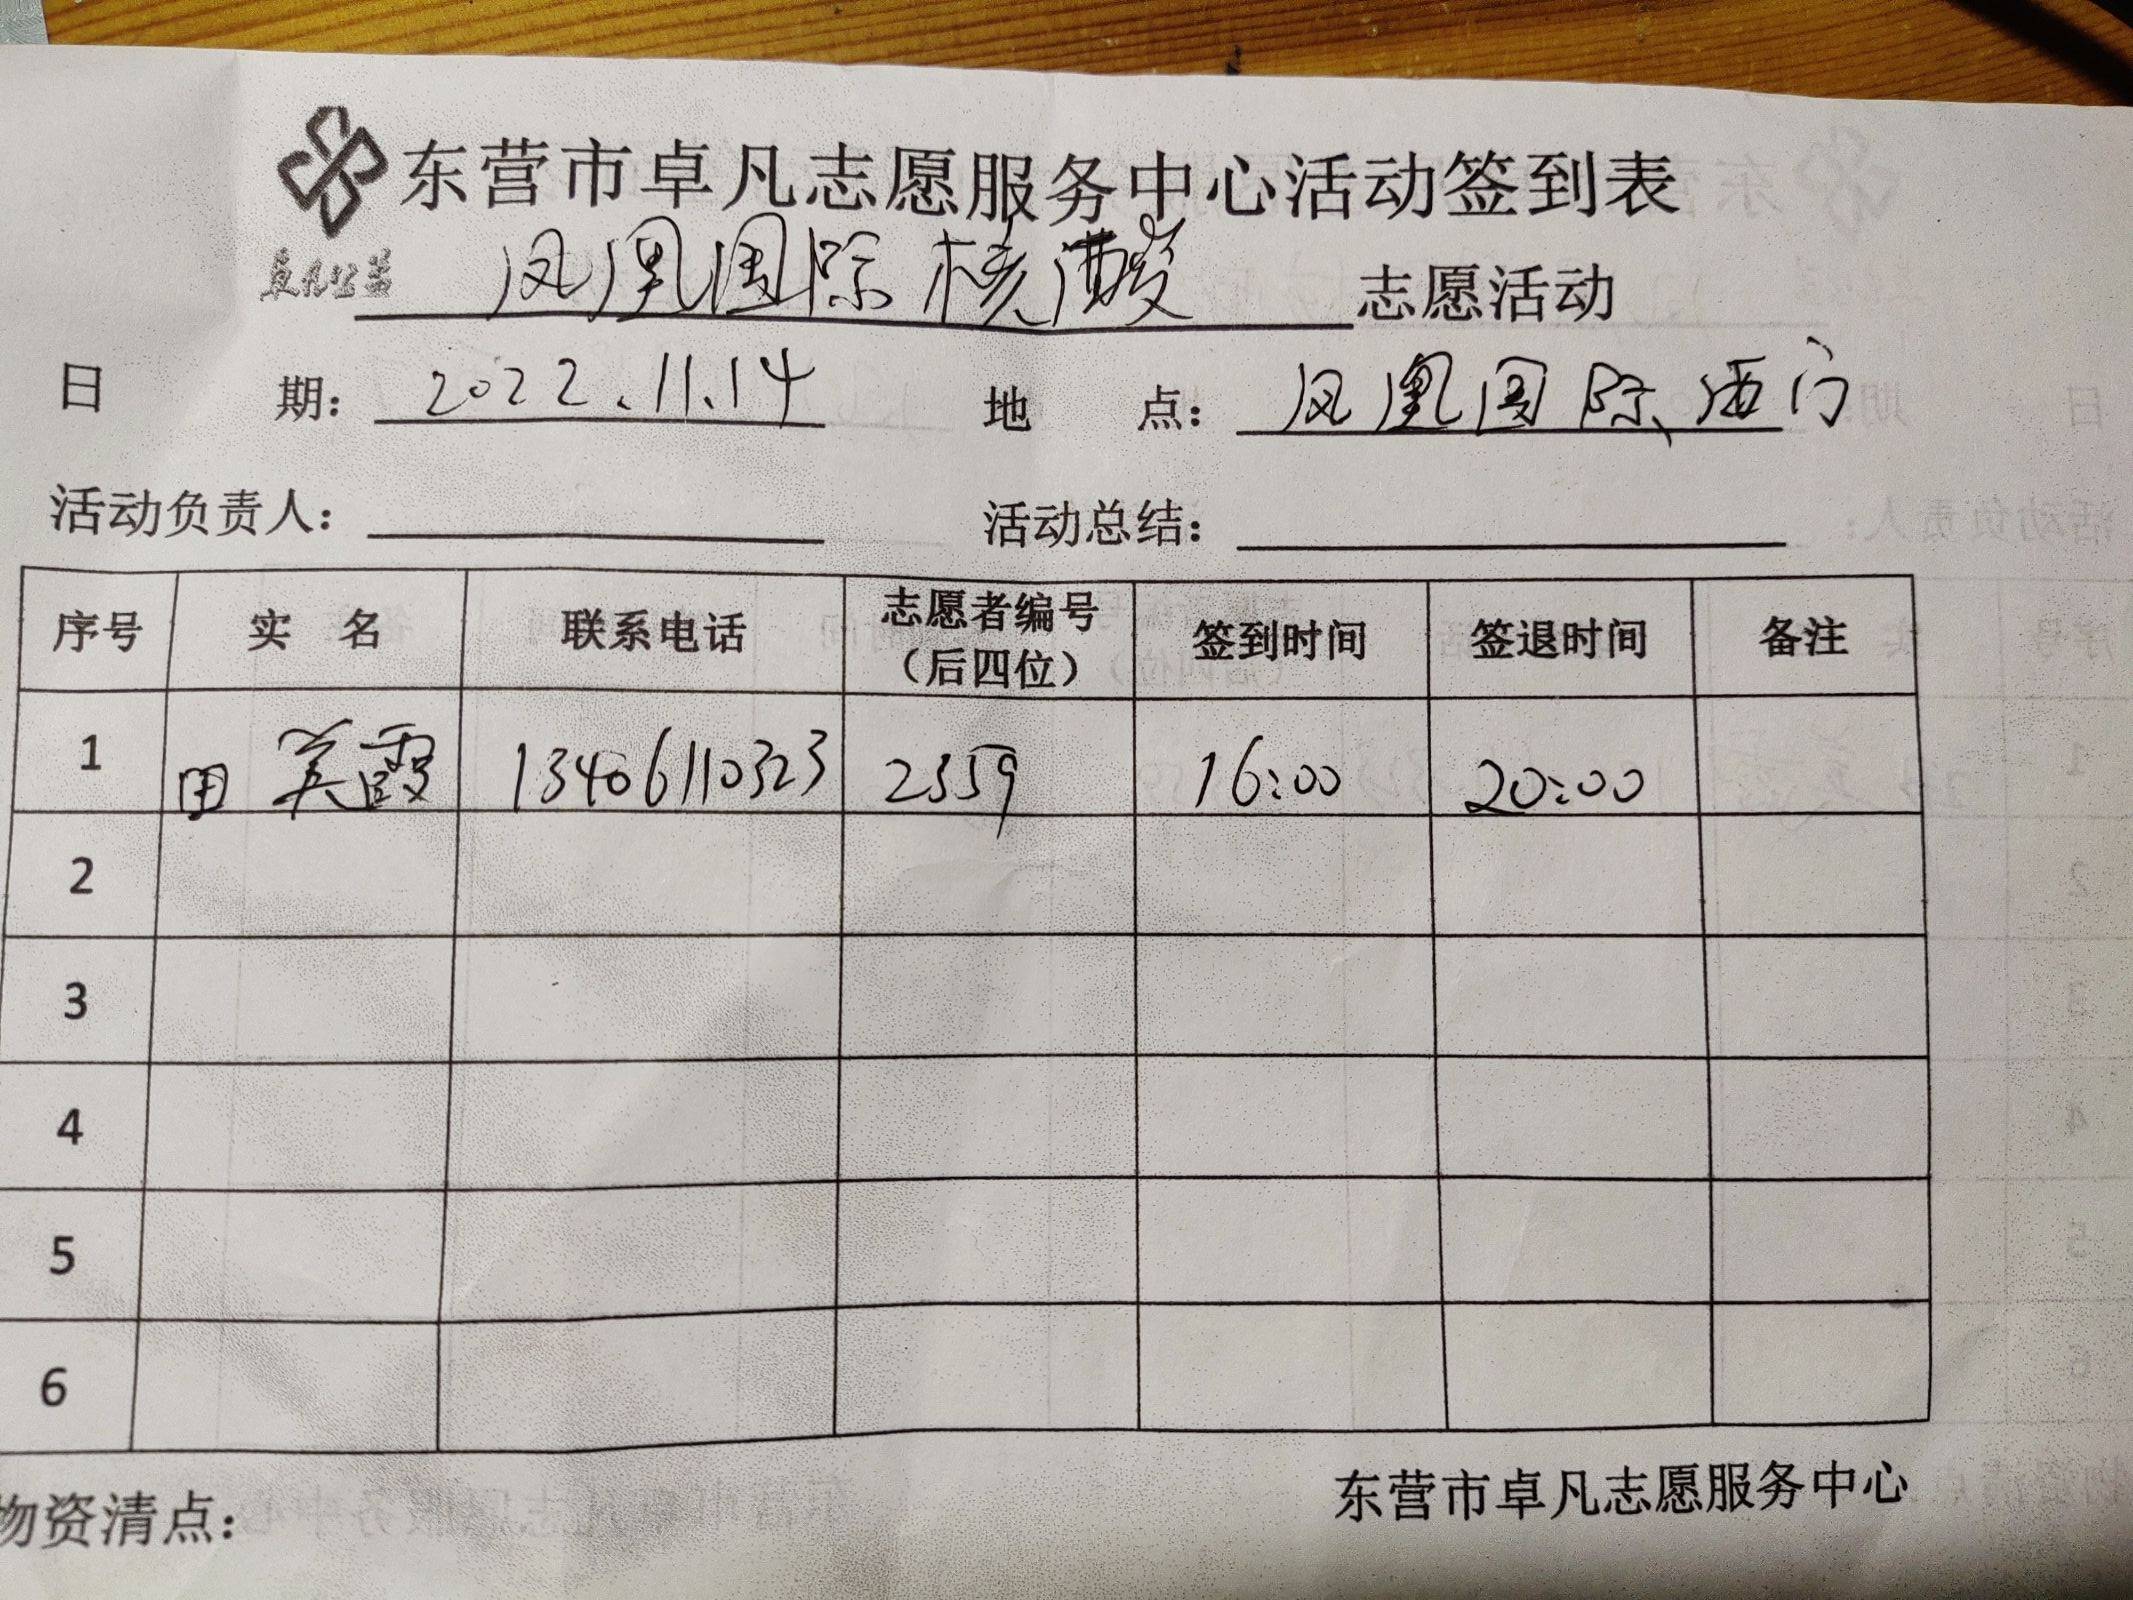 东营市卓凡志愿服务中心活动签到表
卓凡公益
凤凰国际核酸 志愿活动
日 期: 2022.11.14 地 点: 凤凰国际西门
活动负责人: 活动总结:
序号 实 名 联系电话 志愿者编号(后四位) 签到时间 签退时间 备注
1 田美霞 13406110323 2359 16:00 20:00
2
3
4
5
6
物资清点: 东营市卓凡志愿服务中心